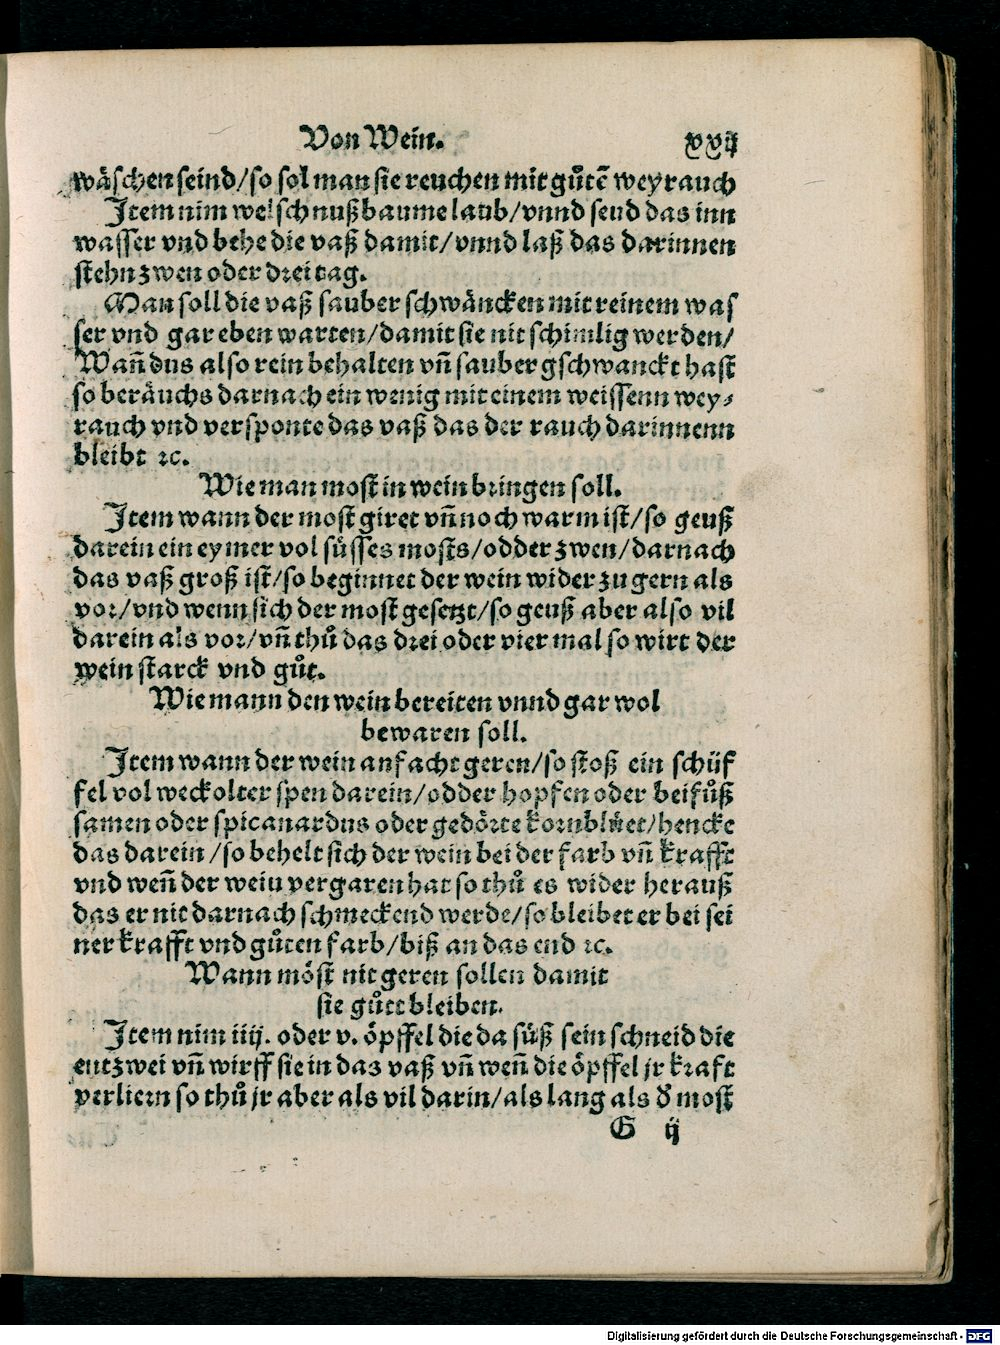 Von Wein. xxij
wäschen seind/so sol man sie reuchen mit gůtē weyrauch
Item nim welsch nußbaume laub/vnnd seud das inn
wasser vnd behe die vaß damit/vnnd laß das darinnen
stehn zwen oder drei tag.
Man soll die vaß sauber schwäncken mit reinem was
ser vnd gar eben warten/damit sie nit schimlig werden/
Wañ dus also rein behalten vñ sauber gschwanckt hast
so beräuchs darnach ein wenig mit einem weissenn wey⸗
rauch vnd versponte das vaß das der rauch darinnenn
bleibt ꝛc.
Wie man most in wein bringen soll.
Item wann der most giret vñ noch warm ist/so geuß
darein ein eymer vol süsses mosts/odder zwen/darnach
das vaß groß ist/so beginnet der wein wider zu gern als
vor/vnd wenn sich der most gesetzt/so geuß aber also vil
darein als vor/vñ thů das drei oder vier mal so wirt der
wein starck vnd gůt.
Wie mann den wein bereiten vnnd gar wol
bewaren soll.
Item wann der wein anfacht geren/so stoß ein schüf
fel vol weckolter spen darein/odder hopfen oder beifůß
samen oder spicanardus oder gedörte kornblüet/hencke
das darein/so behelt sich der wein bei der farb vñ krafft
vnd weñ der wein vergaren hat so thů es wider herauß
das er nit darnach schmeckend werde/so bleibet er bei sei
ner krafft vnd gůten farb/biß an das end ꝛc.
Wann möst nit geren sollen damit
sie gůtt bleiben.
Item nim iiij. oder v. öpffel die da süß sein schneid die
entzwei vñ wirff sie in das vaß vñ weñ die öpffel jr kraft
verliern so thů jr aber als vil darin/als lang als d̕ most
G ij
Digitalisierung gefördert durch die Deutsche Forschungsgemeinschaft - DFG